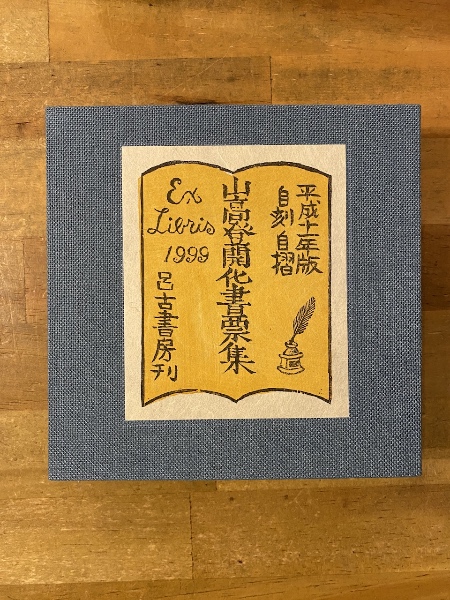 平成十一年版
自刻自摺
山高登開化書票集
Ex
Libris
1999
呂古書房刊